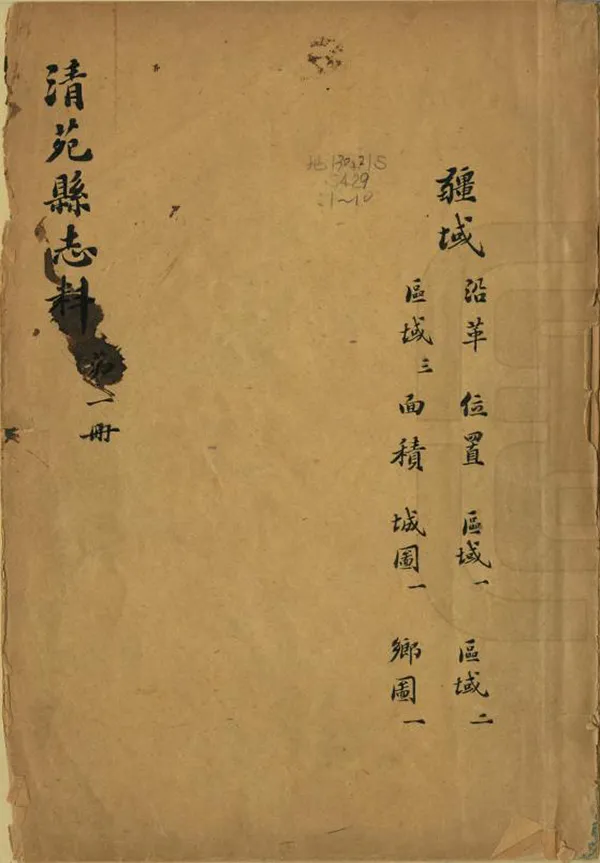 疆域
沿革 位置 區域一 區域二
區域三 面積 城圖一 鄉圖一
地130.21S
5429
:1~10
清苑縣志料 第一冊